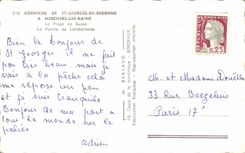 210 CORNICHE DE ST-GEORGES-DE-DIDONNE
A MESCHERS-LES-BAINS
La Plage de Suzac
Bien le bonjour de
St Georges il ne fait
pas très beau mais je
vais a la pêche cela
me repose un peu
et je suis tranquille
Bonjour de ma part a
tout le monde sur le
palier
Adrien
M. BERJAUD
0,25
Mr et Madame
33 Rue
Paris 17e